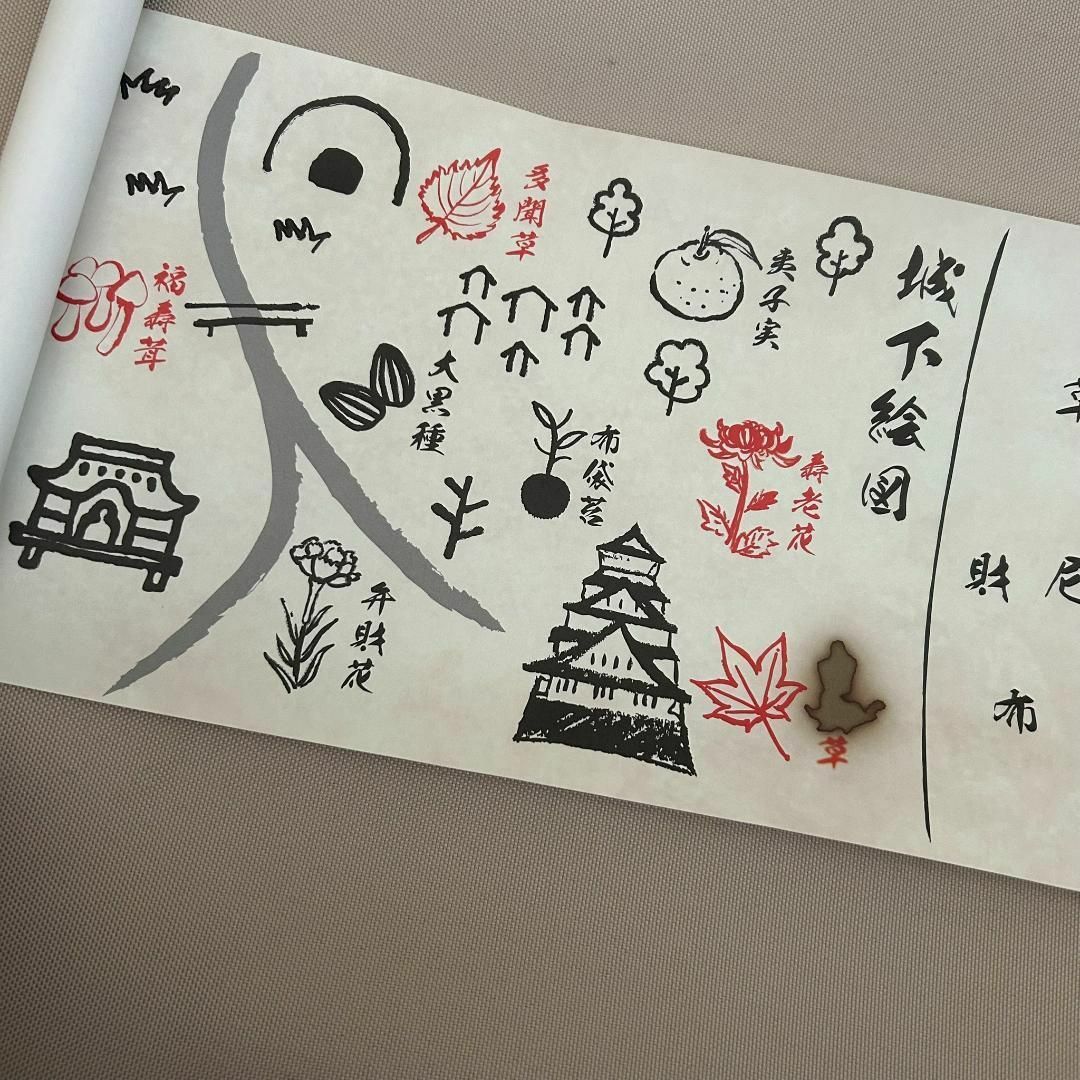 草
尼
財
布
城下絵図
夷子実
壽老花
草
多聞草
布袋苔
大黒種
弁財花
福壽茸